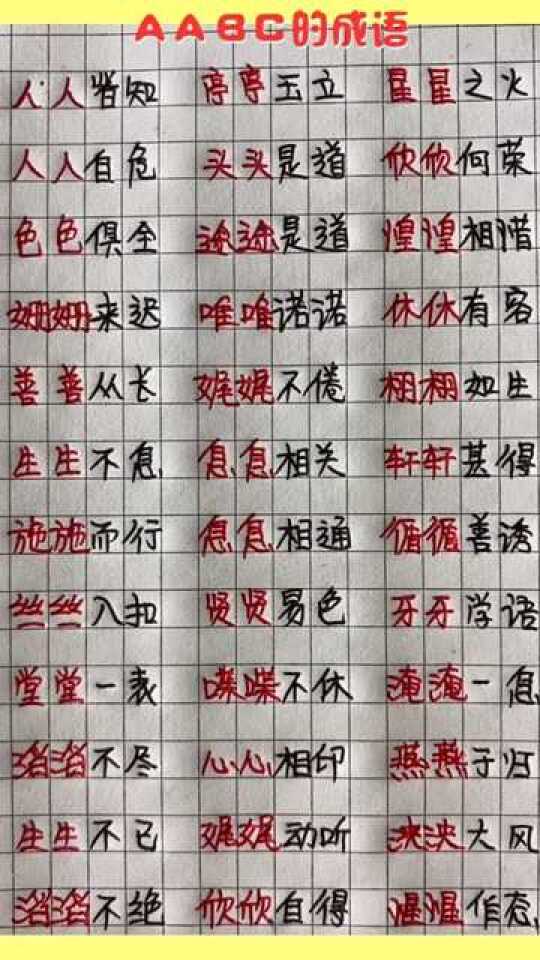 AABC的成语
人人皆知 亭亭玉立 星星之火
人人自危 头头是道 欣欣何荣
色色俱全 途途是道 惶惶相惜
姗姗来迟 唯唯诺诺 休休有客
善善从长 娓娓不倦 栩栩如生
生生不息 息息相关 轩轩甚得
施施而行 息息相通 循循善诱
丝丝入扣 贤贤易色 牙牙学语
堂堂一表 喋喋不休 淹淹一息
滔滔不尽 心心相印 燕燕于归
生生不已 娓娓动听 泱泱大风
滔滔不绝 欣欣自得 惺惺作态